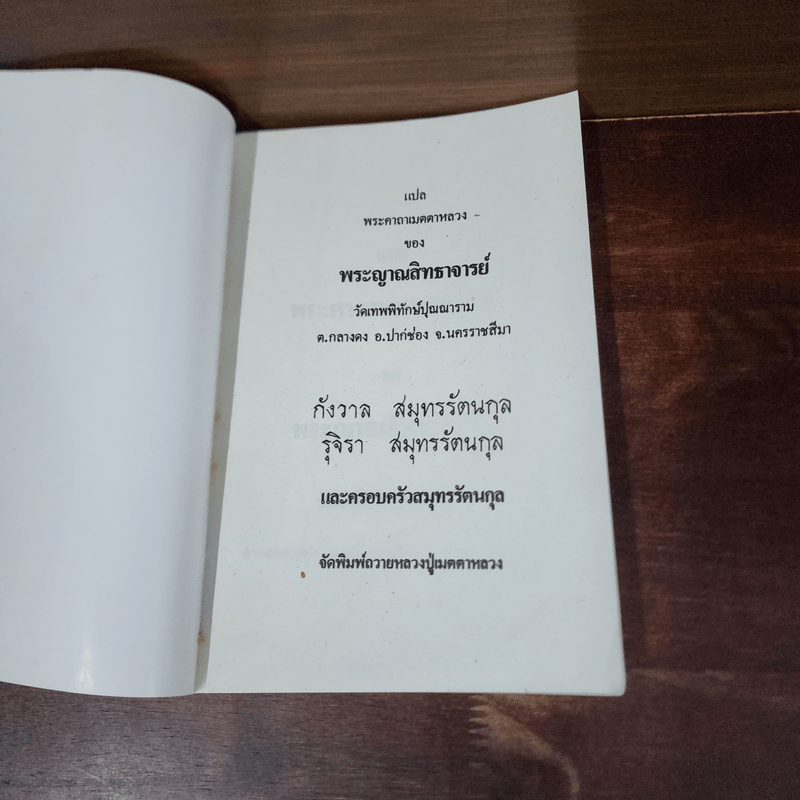 แปล
พระคาถาเมตตาหลวง
ของ
พระญาณสิทธาจารย์
วัดเทพพิทักษ์ปุณณาราม
ต.กลางดง อ.ปากช่อง จ.นครราชสีมา
กังวาล สมุทรรัตนกุล
รุจิรา สมุทรรัตนกุล
และครอบครัวสมุทรรัตนกุล
จัดพิมพ์ถวายหลวงปู่เมตตาหลวง